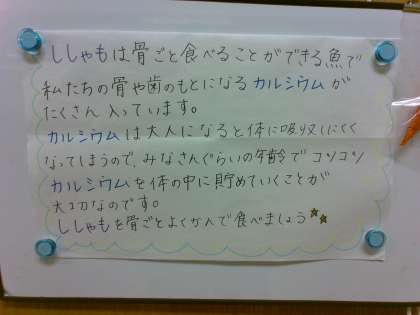 ししゃもは骨ごと食べることができる魚で
私たちの骨や歯のもとになるカルシウムが
たくさん入っています。
カルシウムは大人になると体に吸収しにくく
なってしまうので、みなさんぐらいの年齢でコツコツ
カルシウムを体の中に貯めていくことが
大切なのです。
ししゃもを骨ごとよくかんで食べましょう